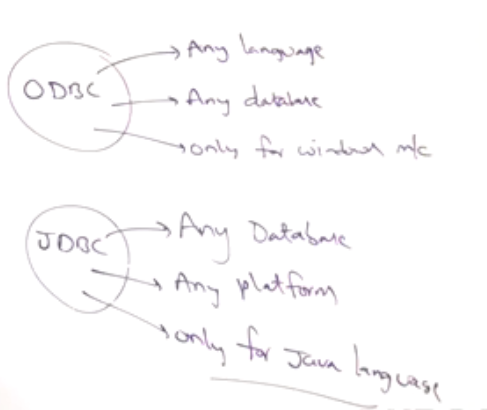 ODBC
Any language
Any database
only for window m/c
JDBC
Any Database
Any platform
only for Java language